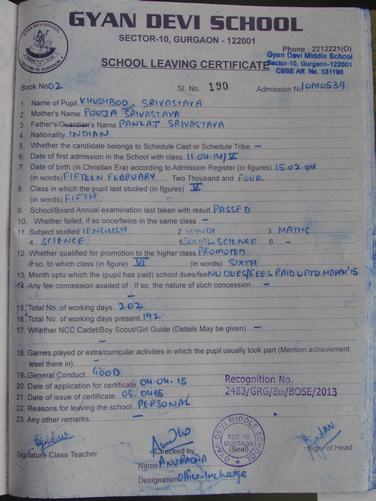 GYAN DEVI SCHOOL
SECTOR-10, GURGAON - 122001
Phone : 2212221(O)
Gyan Devi Middle School
Sector-10, Gurgaon-122001
CBSE Aff. No. 531190
SCHOOL LEAVING CERTIFICATE
Book No 02 Sl. No. 190 Admission No 10M0539
1. Name of Pupil KHUSHBOO SRIVASTAVA
2. Mother's Name POOJA SRIVASTAVA
3. Father's/Guardian's Name PANKAJ SRIVASTAVA
4. Nationality INDIAN
5. Whether the candidate belongs to Schedule Cast or Schedule Tribe -
6. Date of first admission in the School with class 11.04.14/V
7. Date of birth (in Christian Era) according to Admission Register (in figures) 15.02.04
(in words) FIFTEEN FEBRUARY Two Thousand and FOUR
8. Class in which the pupil last studied (in figures) V
(in words) FIFTH
9. School/Board Annual examination last taken with result PASSED
10. Whether failed, if so once/twice in the same class -
11. Subject studied 1 ENGLISH 2 HINDI 3 MATHS
4. SCIENCE 5 SOCIAL SCIENCE 6 -
12. Whether qualified for promotion to the higher class PROMOTED
If so, to which class (in figure) VI (in words) SIXTH
13. Month upto which the (pupil has paid) school dues/fee NO DUES/FEES PAID UPTO MARCH'15
14. Any fee concession availed of : If so, the nature of such concession -
15. Total No. of working days 202
16. Total No. of working days present 192
17. Whether NCC Cadet/Boy Scout/Girl Guide (Details May be given) -
18. Games played or extra/curricular activities in which the pupil usually took part (Mention achievement
level there in) -
19. General Conduct GOOD
20. Date of application for certificate 04.04.15
21. Date of issue of certificate 05.0415
22. Reasons for leaving the school PERSONAL
23. Any other remarks -
Recognition No.
2483/GRG/8th/BOSE/2013
GYAN DEVI MIDDLE SCHOOL
SEC. 10
GURGAON
(Seal)
Signature Class Teacher
Checked by
Name ANURADHA
Designation Office-Incharge
Sign. of Head